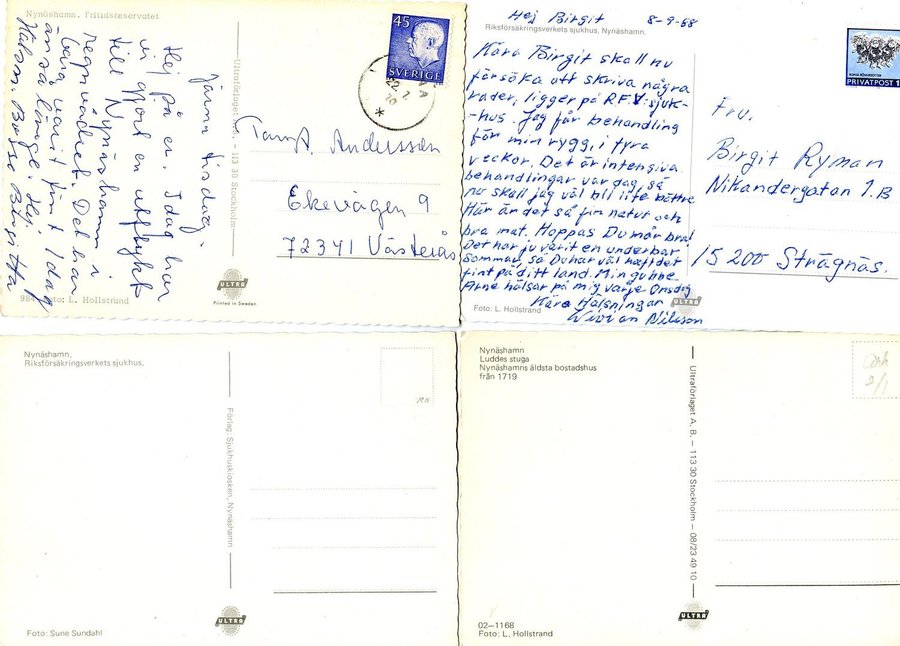 Nynäshamn. Fritidsreservatet
Järna tisdag.
Hej på er. Idag har
vi gjort en utflykt
till Nynäshamn i
regnvädret. Det har
bara varit fint 1 dag
än så länge. Hej
Hälsn. Bosse Birgitta
Ultraförlaget A.B. – 113 30 Stockholm
45
SVERIGE
22.7.
70
Andersson
Ekevägen 9
72341 Västerås
ULTRA
Printed in Sweden
984 Foto: L. Hollstrand
Hej Birgit 8-9-88
Riksförsäkringsverkets sjukhus, Nynäshamn.
Kära Birgit skall nu
försöka att skriva några
rader, ligger på RFV:sjuk-
-hus. Jag får behandling
för min rygg, i fyra
veckor. Det är intensiva
behandlingar var dag, så
nu skall jag väl bli lite bättre
Här är det så fin natur och
bra mat. Hoppas Du mår bra!
Det har ju varit en underbar
sommar, så Du har väl haft det
fint på ditt land. Min gubbe
Arne hälsar på mig varje Onsdag
Kära Hälsningar
Wivian Nilsson
Foto: L. Hollstrand
ULTRA
PRIVATPOST 1
Fru.
Birgit Ryman
Nikandergatan 1.B
15200 Strägnäs.
Nynäshamn,
Riksförsäkringsverkets sjukhus,
Förlag: Sjukhuskiosken, Nynäshamn
ULTRA
Foto: Sune Sundahl
Nynäshamn
Luddes stuga
Nynäshamns äldsta bostadshus
från 1719
Ultraförlaget A. B. – 113 30 Stockholm – 08/23 49 10
ULTRA
02–1168
Foto: L. Hollstrand